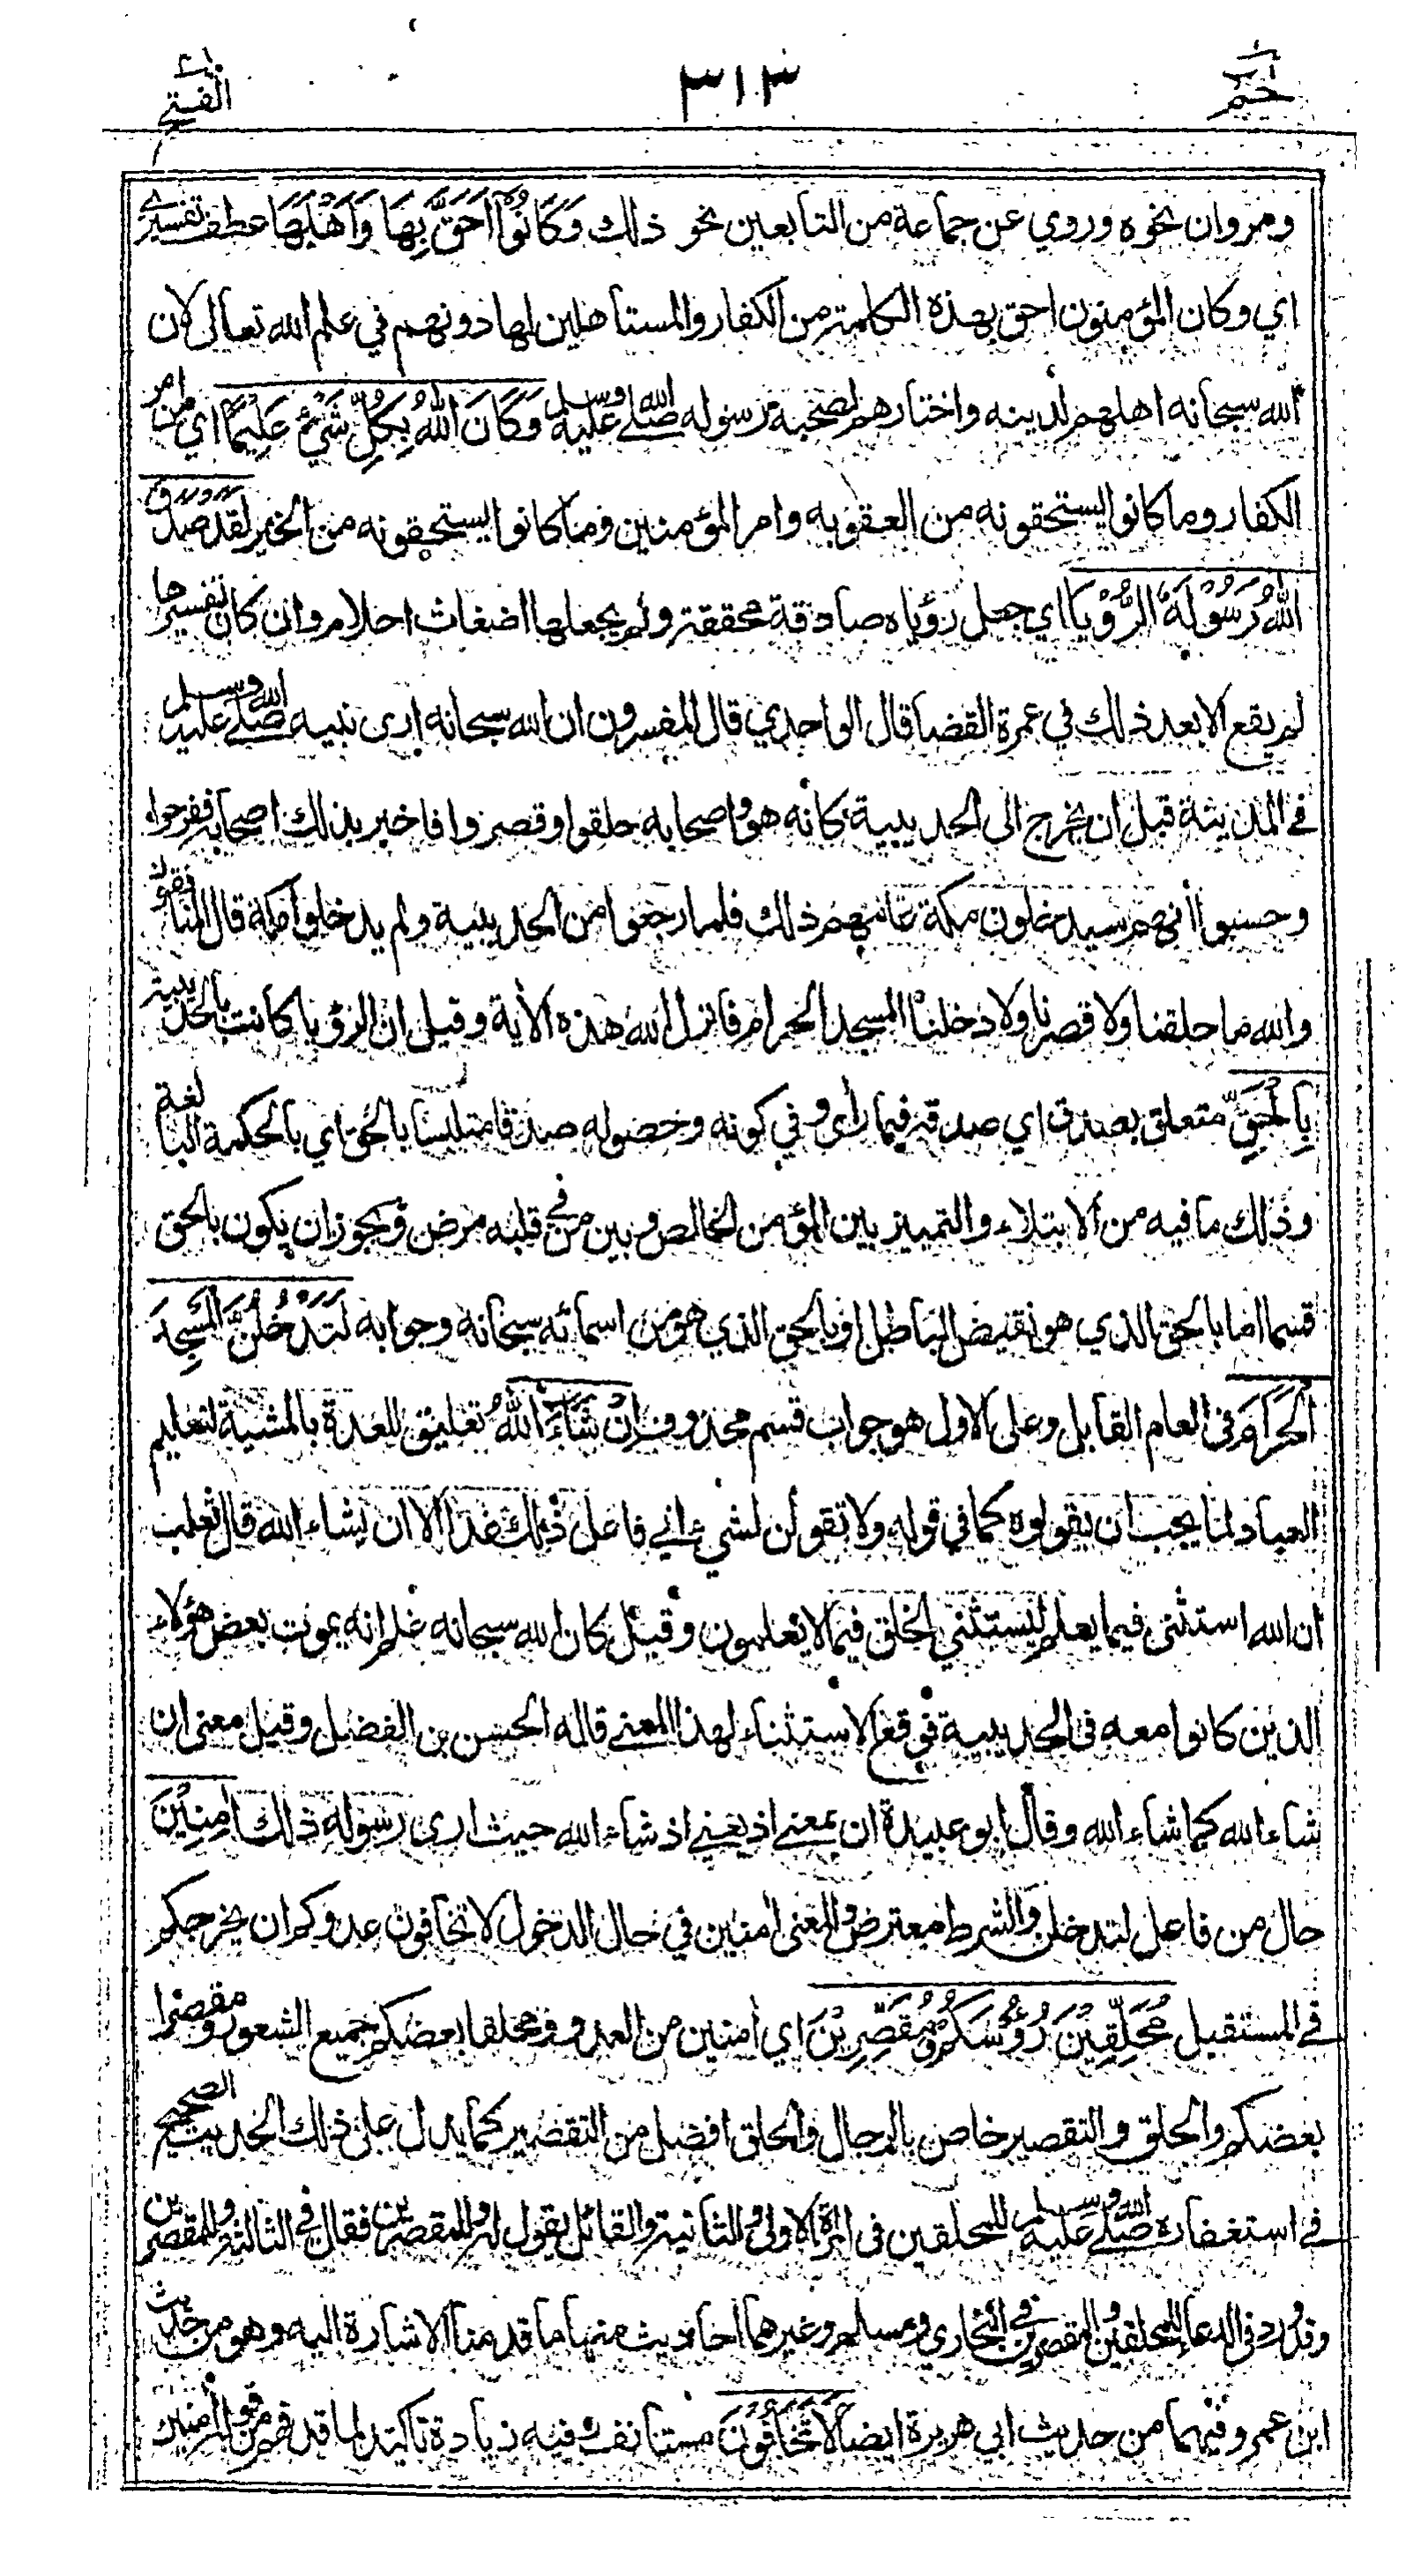 حم
٣١٣
الفتح
ومروان نحوه وروي عن جماعة من التابعين نحو ذلك وَكَانُوْا اَحَقَّ بِهَا وَاَهْلَهَا عطف تفسيري
اي وكان المؤمنون احق بهذه الكلمة من الكفار والمستأهلين لها دونهم في علم الله تعالى لان
الله سبحانه اهلهم لدينه واختارهم لصحبة رسوله صلى الله عليه وسلم وَكَانَ اللّٰهُ بِكُلِّ شَيْءٍ عَلِيْمًا اي من امر
الكفار وما كانوا يستحقونه من العقوبه وامر المؤمنين وما كانوا يستحقونه من الخير لَقَدْ صَدَقَ
اللّٰهُ رَسُوْلَهُ الرُّؤْيَا اي جعل رؤياه صادقة محققة ولم يجعلها اضغاث احلام وان كان تفسيرها
لم يقع الا بعد ذلك في عمرة القضا قال الواحدي قال المفسرون ان الله سبحانه ارى نبيه صلى الله عليه وسلم
في المدينة قبل ان يخرج الى الحديبية كانه هو واصحابه حلقوا وقصروا فاخبر بذلك اصحابه ففرحوا
وحسبوا أنهم سيدخلون مكة عامهم ذلك فلما رجعوا من الحديبية ولم يدخلوا مكة قال المنافقون
والله ما حلقنا ولا قصرنا ولا دخلنا المسجد الحرام فانزل الله هذه الأية وقيل ان الرؤيا كانت بالحديبية
بِالْحَقِّ متعلق بصدق اي صدقه فيما رأى وفي كونه وحصوله صدقا متلبسا بالحق اي بالحكمة البالغة
وذلك ما فيه من الابتلاء والتمييز بين المؤمن الخالص وبين من في قلبه مرض ويجوز ان يكون بالحق
قسما اما بالحق الذي هو نقيض الباطل او بالحق الذي هو من اسمائه سبحانه وجوابه لَتَدْخُلُنَّ الْمَسْجِدَ
الْحَرَامَ في العام القابل وعلى الاول هو جواب قسم محذوف اِنْ شَآءَ اللّٰهُ تعليق للعدة بالمشية لتعليم
العباد لما يجب ان يقولوه كما في قوله ولا تقولن لشيء اني فاعل ذلك غدا الا ان يشاء الله قال ثعلب
ان الله استثنى فيما يعلم ليستثني الخلق فيما لا يعلمون وقيل كان الله سبحانه علم انه يموت بعض هؤلاء
الذين كانوا معه في الحديبية فوقع الاستثناء لهذا المعنى قاله الحسن بن الفضل وقيل معنى ان
شاء الله كما شاء الله وقال ابو عبيدة ان بمعنى اذ يعني اذ شاء الله حيث ارى رسوله ذلك اٰمِنِيْنَ
حال من فاعل لتدخلن والشرط معترض والمعنى امنين في حال الدخول لا تخافون عدوكم ان يخرجكم
في المستقبل مُحَلِّقِيْنَ رُءُوْسَكُمْ وَمُقَصِّرِيْنَ اي أمنين من العدو ومحلقا بعضكم جميع الشعور ومقصرا
بعضكم والحلق والتقصير خاص بالرجال والحلق افضل من التقصير كما يدل على ذلك الحديث الصحيح
في استغفاره صلى الله عليه وسلم للمحلقين في المرة الاولى والثانية والقائل يقول له وللمقصرين فقال في الثالثة وللمقصرين
وقد ورد في الدعاء للمحلقين والمقصرين في البخاري ومسلم وغيرهما احاديث منها ما قدمنا الاشارة اليه وهو من حديث
ابن عمر وفيهما من حديث ابي هريرة ايضا لَا تَخَافُوْنَ مستانف وفيه زيادة تاكيد لما قد فهم من قوله امنين